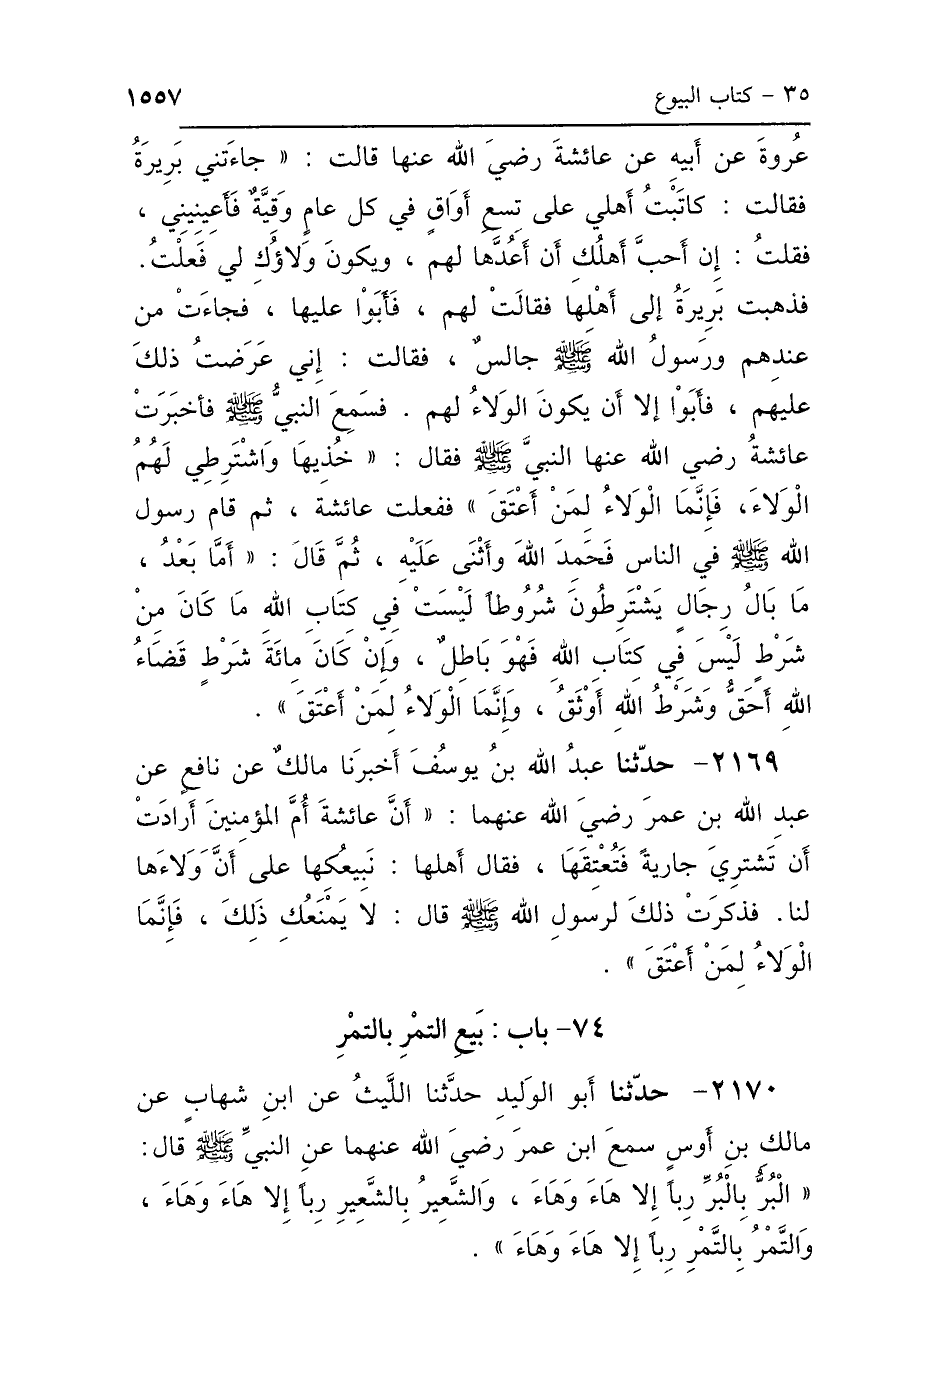 ٣٥ - كتاب البيوع ١٥٥٧
عُروةَ عن أَبيهِ عن عائشةَ رضيَ الله عنها قالت : « جاءَتني بَرِيرَةُ
فقالت : كاتَبْتُ أهلي على تِسعِ أَوَاقٍ في كل عامٍ وَقِيَّةٌ فَأَعِينِيني ،
فقلتُ : إن أحبَّ أهلُكِ أن أعُدَّها لهم ، ويكونَ وَلاؤُكِ لي فَعلْتُ.
فذهبت بَرِيرَةُ إلى أَهْلِها فقالَتْ لهم ، فَأَبَوْا عليها ، فجاءَتْ من
عندِهم ورَسولُ الله ﷺ جالسٌ ، فقالت : إني عَرَضتُ ذلكَ
عليهم ، فأبَوْا إلا أن يكونَ الولاءُ لهم . فسَمِعَ النبيُّ ﷺ فأخبَرَتْ
عائشةُ رضي الله عنها النبيَّ ﷺ فقال : « خُذِيهَا وَاشْتَرِطِي لَهُمُ
الْوَلاَءَ، فَإِنَّمَا الْوَلاءُ لِمَنْ أَعْتَقَ » ففعلت عائشة ، ثم قام رسول
الله ﷺ في الناس فَحَمِدَ اللهَ وأَثْنَى عَلَيْهِ ، ثُمَّ قَالَ : « أَمَّا بَعْدُ ،
مَا بَالُ رِجَالٍ يَشْتَرِطُونَ شُرُوطاً لَيْسَتْ في كِتَابِ اللهِ مَا كَانَ مِنْ
شَرْطٍ لَيْسَ فِي كِتَابِ اللهِ فَهْوَ بَاطِلٌ ، وَإِنْ كَانَ مِائَةَ شَرْطٍ قَضَاءُ
اللهِ أَحَقُّ وَشَرْطُ اللهِ أَوْثَقُ ، وَإِنَّمَا الْوَلاءُ لِمَنْ أَعْتَقَ » .
٢١٦٩- حدّثنا عبدُ الله بنُ يوسُفَ أخبرَنا مالكٌ عن نافعٍ عن
عبدِ الله بن عمرَ رضيَ الله عنهما : « أنَّ عائشةَ أُمَّ المؤمنِينَ أرادَتْ
أن تَشتريَ جاريةً فَتُعْتِقَهَا ، فقال أهلها : نَبِيعُكِها على أنَّ وَلاءَها
لنا. فذكرَتْ ذلكَ لرسولِ الله ﷺ قال : لا يَمْنَعُكِ ذَلِكَ ، فَإِنَّمَا
الْوَلاءُ لِمَنْ أَعْتَقَ » .
٧٤- باب : بَيعِ التمْرِ بالتمْرِ
٢١٧٠- حدّثنا أبو الوَلِيدِ حدَّثنا اللَّيثُ عن ابنِ شهابٍ عن
مالكِ بنِ أوسٍ سمعَ ابن عمرَ رضيَ الله عنهما عنِ النبيِّ ﷺ قال:
« الْبُرُّ بِالْبُرِّ رِباً إلا هَاءَ وَهَاءَ ، وَالشَّعِيرُ بالشَّعِيرِ رِباً إلا هَاءَ وَهَاءَ ،
وَالتَّمْرُ بِالتَّمْرِ رِباً إِلا هَاءَ وَهَاءَ » .